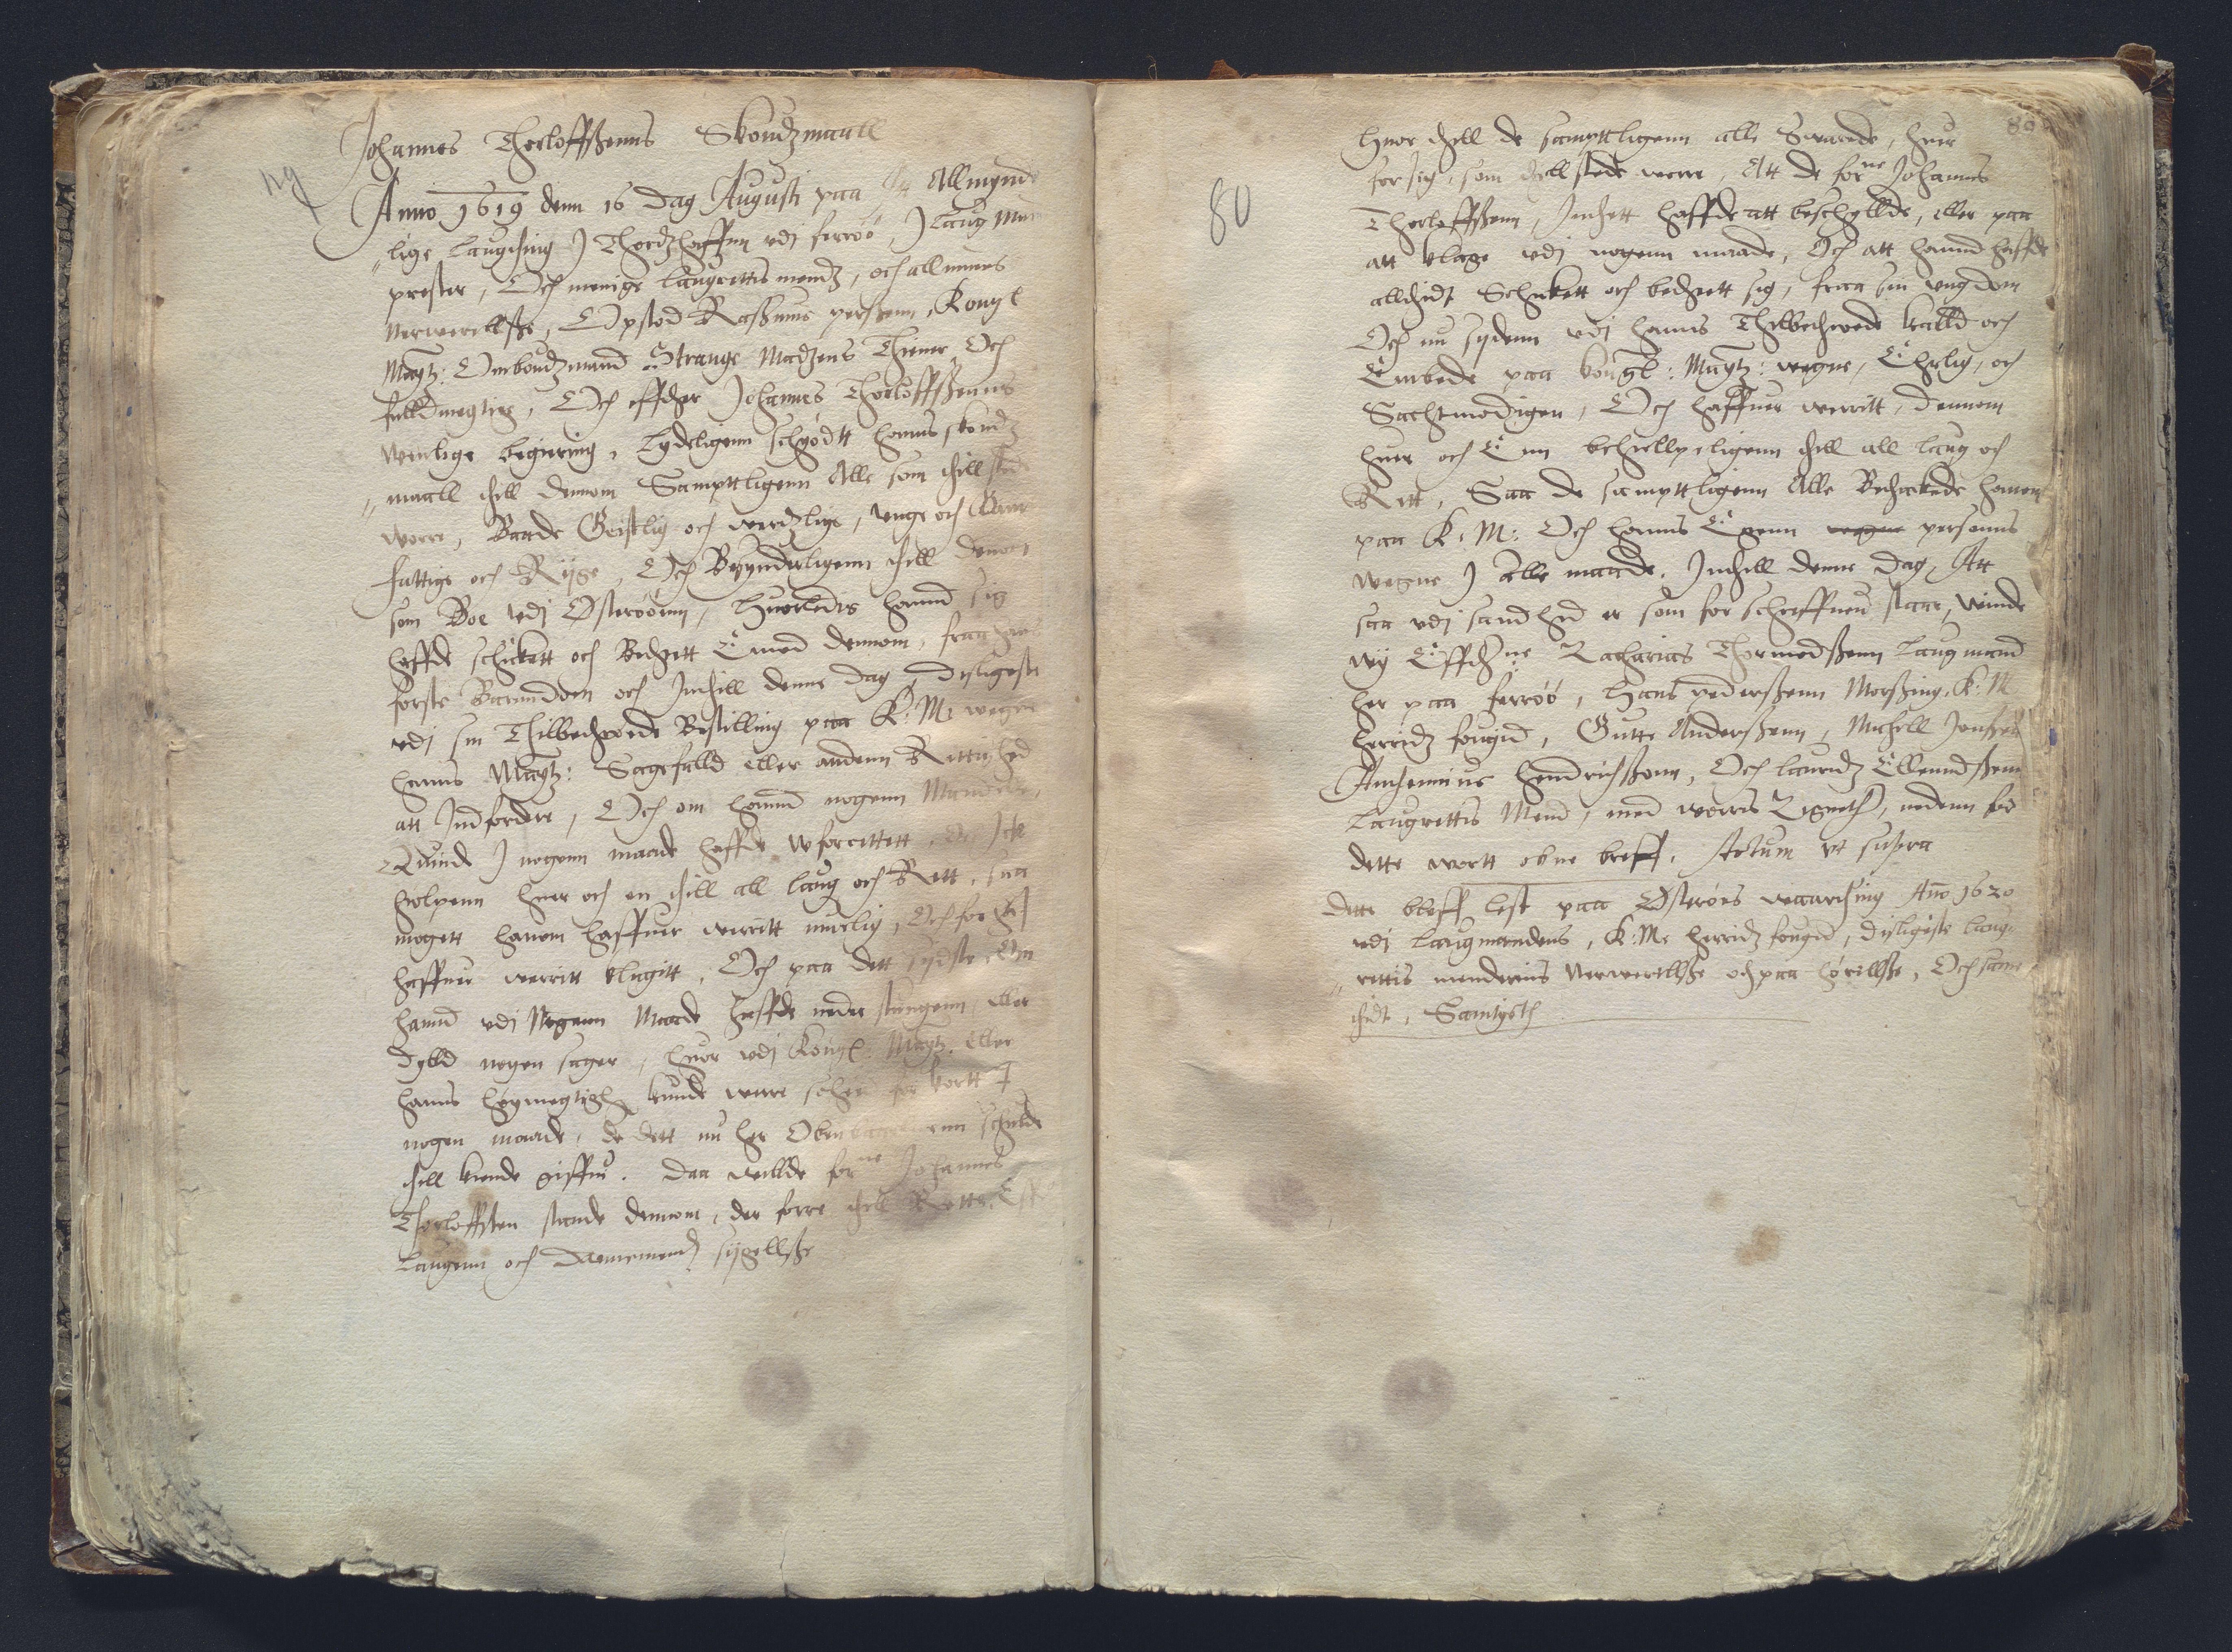 79
Johannes Thorloffßenns Skoudzmaall
Anno 1619 denn 16 dag Augusti paa Allmynde
"lige Laugthing J Thordzhaffnn vdj ferröö, J Laug Mans
prester, Och menige laugrettis mendz, och allmues
Nerwerellße, Opstod Raßmus perßenn, Kongl
Maytz: Omboudzmand Strange Madzens Thiener Och
fulldmegtige, Och effther Johannes Thorloffßenns
wenlige begiering, Lydeligenn schiödtt hanns skoudz
"maall thill dennom Sampttligenn Alle som thillstede
worre, Baade Geistlig och werdzlige, Vnge och Gamle
fattige och Rijge, Och Besynderligenn thill dennom
som Boe vdj Österöönn, Huorledis hannd sig
haffde schickett och Bethett Emod dennom, fraa hans
förste Barnndom och Jnthill denne dag, disligeste
vdj sin Thilbethroede Bestilling paa K: M: wegne
hanns Maytz: Sagefalld eller andenn Rettighed
att Jndfordre, Och om hannd nogenn Mand eller
Quinde J nogenn maade haffde wforrettett, eller Jcke
holpenn huer och en thill all laug och Rett, saa
mögett hanom haffuer werritt muelig, Och for
haffuer werritt klagitt, Och paa dett sydste Om
hannd vdj Nogenn Maade haffde neder stungenn eller
dylld nogen sager, huor vdj Kongl: Maytz: eller
hanns höymegtigh: kunde were scheed for kortt J
nogen maade, de dett nu her Obenbaereligenn schulde
thill kiende giffue. Daa willde for ne Johannes
Thorloffsen stande dennom, der forre thill Rette, Effter
Laugenn och Dannemendz sijgellße
80
80
Huor thill de sampttligenn alle Swarede, huer
for sig, som thillstede werre, Att de for ne Johannes
Thorloffßenn, Jnthett haffde att beschyllde, eller paa
att klage vdj nogenn maade, Och att hannd haffde
allthidt Schickett och bethett sig, fraa sin vngdom
Och nu sydenn vdj hanns Thilbethroede kalld och
Embede paa Kongl: Maytz: wegne, Ehrlig, och
Sachtmodigen, Och haffuer werritt, dennom
huer och Enn behiellpeligenn thill all laug och
Rett, Saa de sampttligenn Alle Bethackede hanom
paa K: M: Och hanns Egenn wegne persons
wegne J alle maade, Jnthill denne dag, Att
saa vdj sandhed er som for schreffued staar, winde
wij Effth: ne Zacharias Thormodßenn Laugmand
her paa ferröö, Hans pederßenn Morßing, K: M
herridz fougid, Gutte Anderßenn, Michell Jenßen
Anthonnius Hendrichßenn, Och lauridz Ellendßenn
Laugrettis Mend, med worris Zigneth, nedenn for
dette wortt obne breff. Actum vt supra
Dette bleff lest paa Österöes waarthing Ano 1620
vdj laugmandens, K: M: herridz fougid, disligeste laug
"rettis mendenns Nerwerellße och paa hörellße, Och samme
thidt, Samtyckt